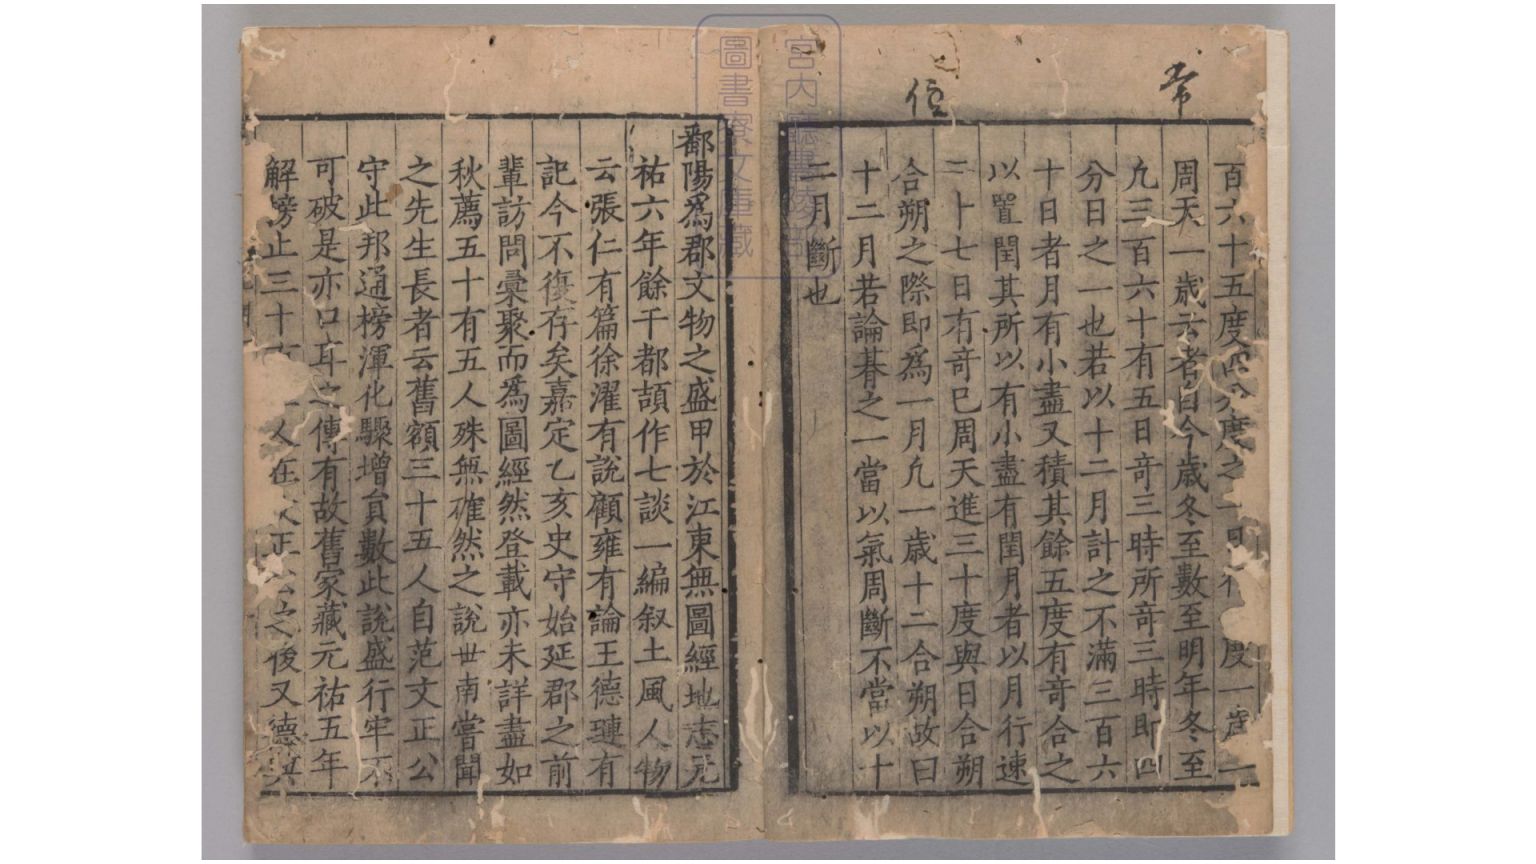 常
住
百六十五度四分度之一日行一度一歲一
周天一歲云者自今歲冬至數至明年冬至
凢三百六十有五日竒三時所竒三時即四
分日之一也若以十二月計之不滿三百六
十日者月有小盡又積其餘五度有竒合之
以置閏其所以有小盡有閏月者以月行速
二十七日有竒巳周天進三十度與日合朔
合朔之際即爲一月凢一歲十二合朔故曰
十二月若論朞之一當以氣周斷不當以十
二月斷也
鄱陽爲郡文物之盛甲於江東無圖經地志元
祐六年餘干都頡作七談一編叙土風人物
云張仁有篇徐濯有說顧雍有論王德璉有
記今不復存矣嘉定乙亥史守始延郡之前
輩訪問彙聚而爲圖經然登載亦未詳盡如
秋薦五十有五人殊無確然之說世南嘗聞
之先生長者云舊額三十五人自范文正公
守此邦通榜渾化驟增負數此說盛行牢不
可破是亦口耳之傳有故舊家藏元祐五年
解牓止三十 人在文正公之後又德興
宮内廳書陵部
圖書寮文庫藏